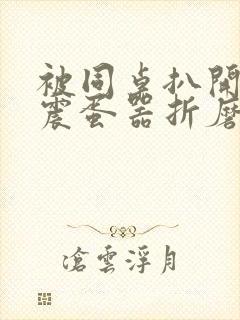 被同桌扒開
震蛋器折磨
滄雲浮月